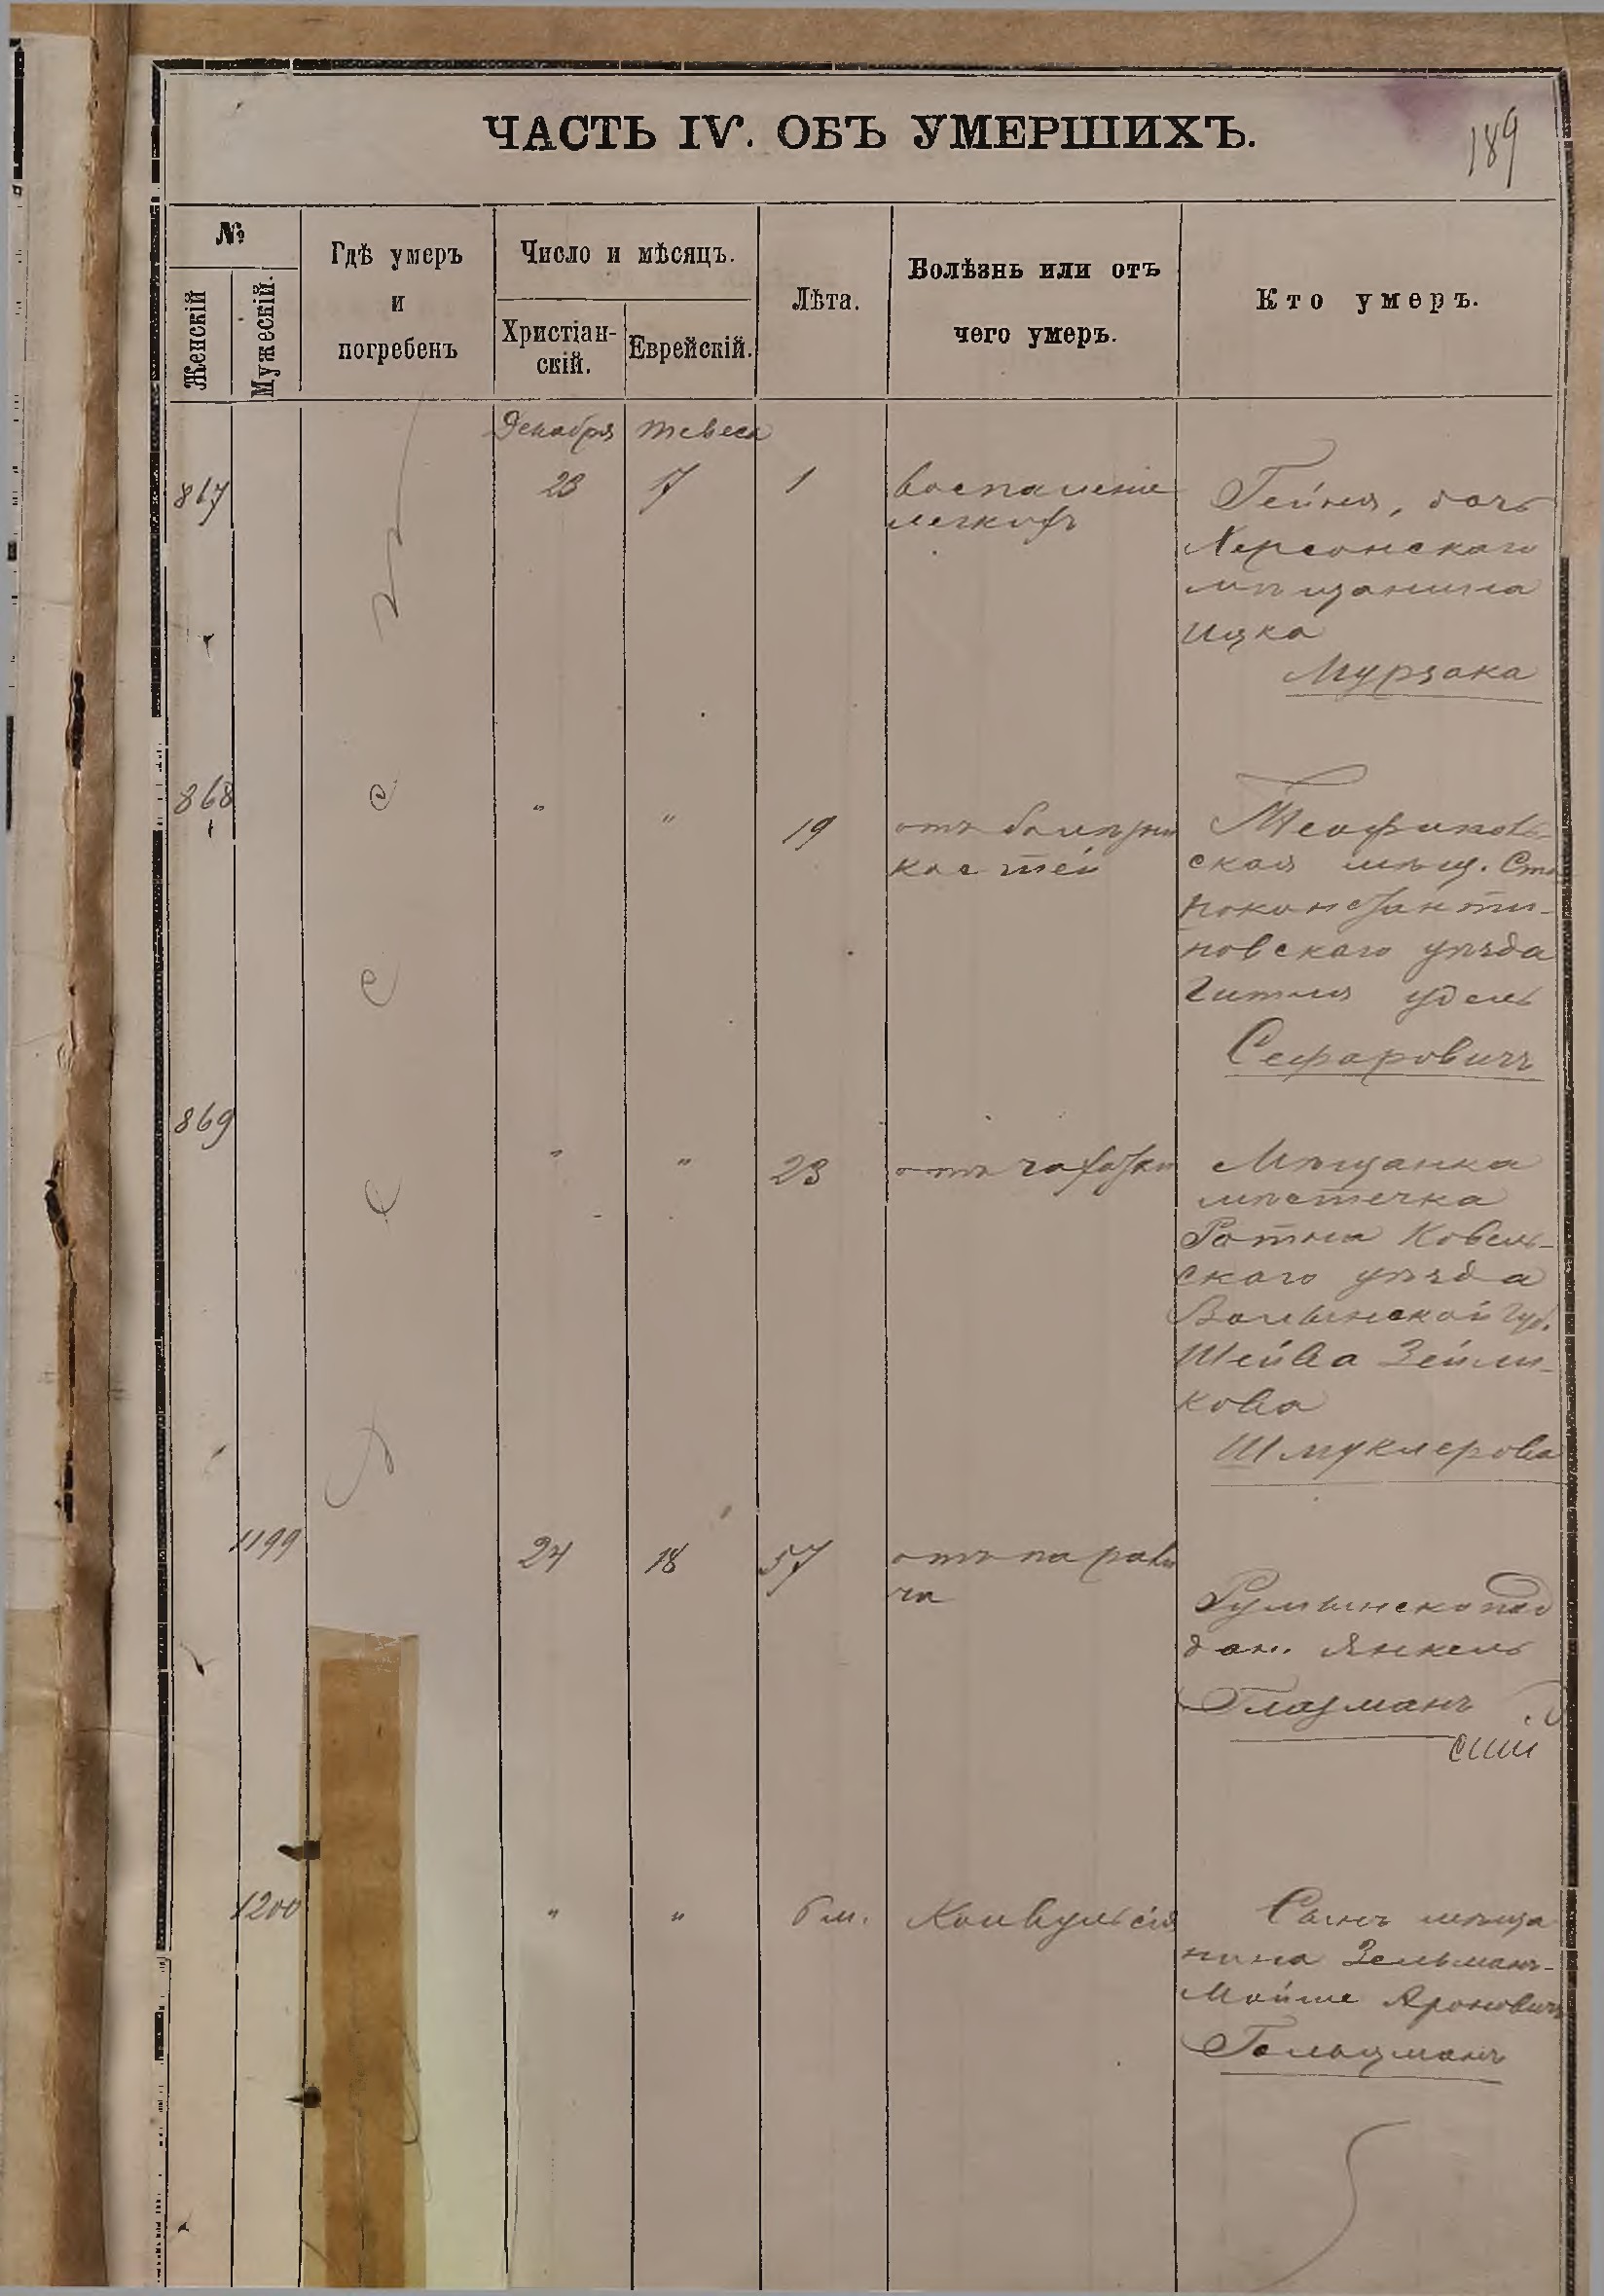 ЧАСТЬ IV. ОБЪ УМЕРШИХЪ.
189
№
Женскій
Мужескій.
Гдѣ умеръ
и
погребенъ
Число и мѣсяцъ.
Христіан-
скій.
Еврейскій.
Лѣта.
Болѣзнь или отъ
чего умеръ.
Кто умеръ.
Декабря Тевеса
867 23 17 1
воспаленіе
легкихъ
Гейня, дочь
Херсонскаго
мѣщанина
Ицка
Мурзака
868 " " 19
отъ болѣзни
костей
Теофиполь-
ская мѣщ. Ста
роконстанти-
новскаго уѣзда
Гитля Удель
Сефаровичъ
869 " " 23
отъ чахотки
Мѣщанка
мѣстечка
Ратна Ковель-
скаго уѣзда
Волынской губ.
Шейва Зейли-
кова
Шмуклерова
1199 24 18 57
отъ парали
ча
Румынскопод
дан. Янкель
Глазманъ
1200 " " 6 м.
Конвульсія
Сынъ мѣща
нина Зельманъ-
Мойше Ароновичъ
Гольцманъ